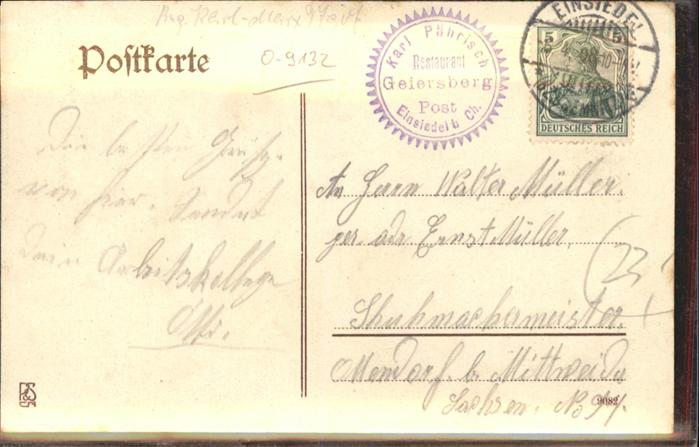 Bez. Karl-Marx Stadt
Postkarte
O-9132
Karl Pährisch
Restaurant
Geiersberg
Post
Einsiedel b Ch.
EINSIEDEL
5 5
DEUTSCHES REICH
Die besten Grüße
von hier. Sendet
Dein Arbeitskollege
Otto.
An Herrn Walter Müller.
per. adr. Ernst Müller,
Schuhmachermeister.
b. Mittweida
Sachsen. No 94.
9082